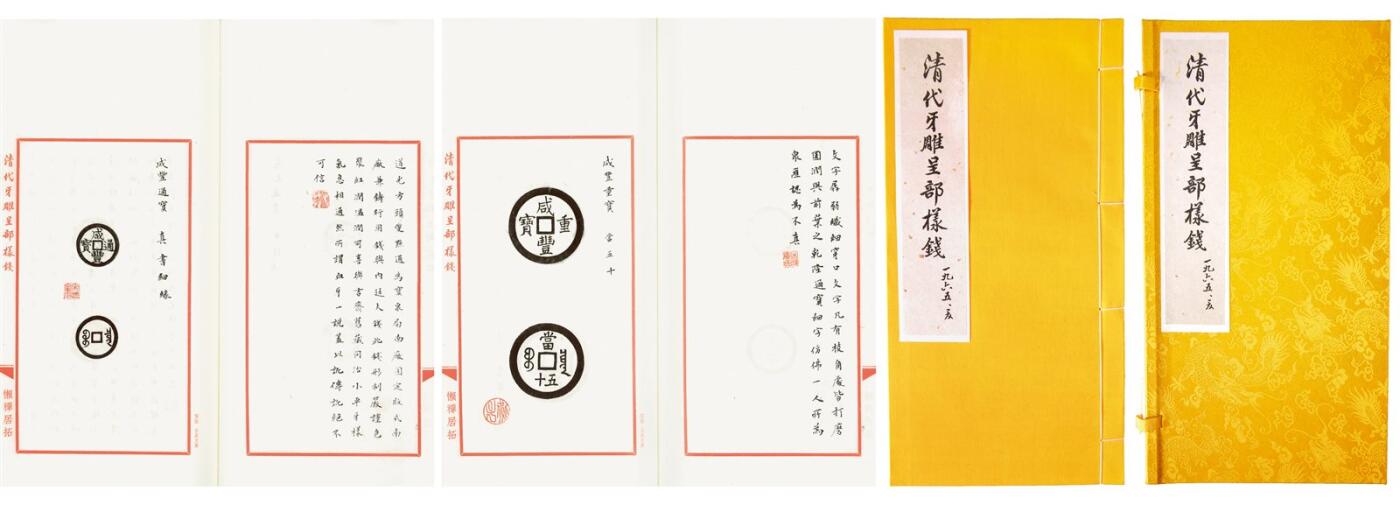 道光方頭雙點通為寶泉局南廠固定版式南
廠兼鑄行用錢與内廷大錢此錢形制嚴謹色
澤紅潤溫潤可喜與古齋舊藏同治小平牙樣
氣息相通然所謂血牙一說蓋以訛傳訛絕不
可信
咸豐通寶 真書細緣
咸豐通寶
清代牙雕呈部樣錢
懶禪居拓
文字孱弱纖細穿口文字凡有稜角處皆打磨
圓潤與前葉之乾隆通寶細字仿佛一人所為
泉匯認為不真
咸豐重寶 當五十
咸豐重寶
當五十
清代牙雕呈部樣錢
懶禪居拓
清代牙雕呈部樣錢
一九六五、
清代牙雕呈部樣錢
一九六五、